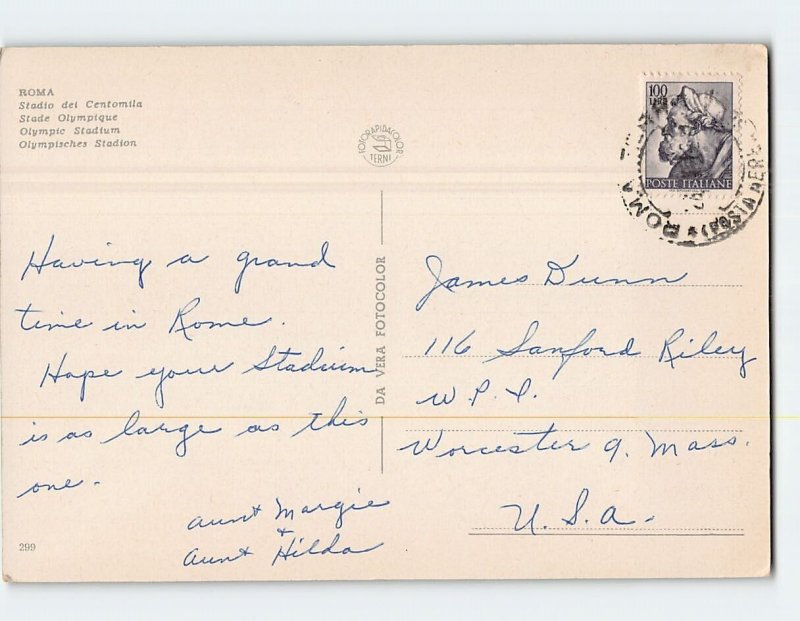 ROMA
Stadio dei Centomila
Stade Olympique
Olympic Stadium
Olympisches Stadion
FOTORAPIDACOLOR
TERNI
100
LIRE
POSTE ITALIANE
ROMA
POSTA AEREA
Having a grand
time in Rome.
Hope your Stadium
is as large as this
one.
Aunt Margie
+
Aunt Hilda
299
DA VERA FOTOCOLOR
James Dunn
116 Sanford Riley
W.P.I.
Worcester 9. Mass.
U.S.A.